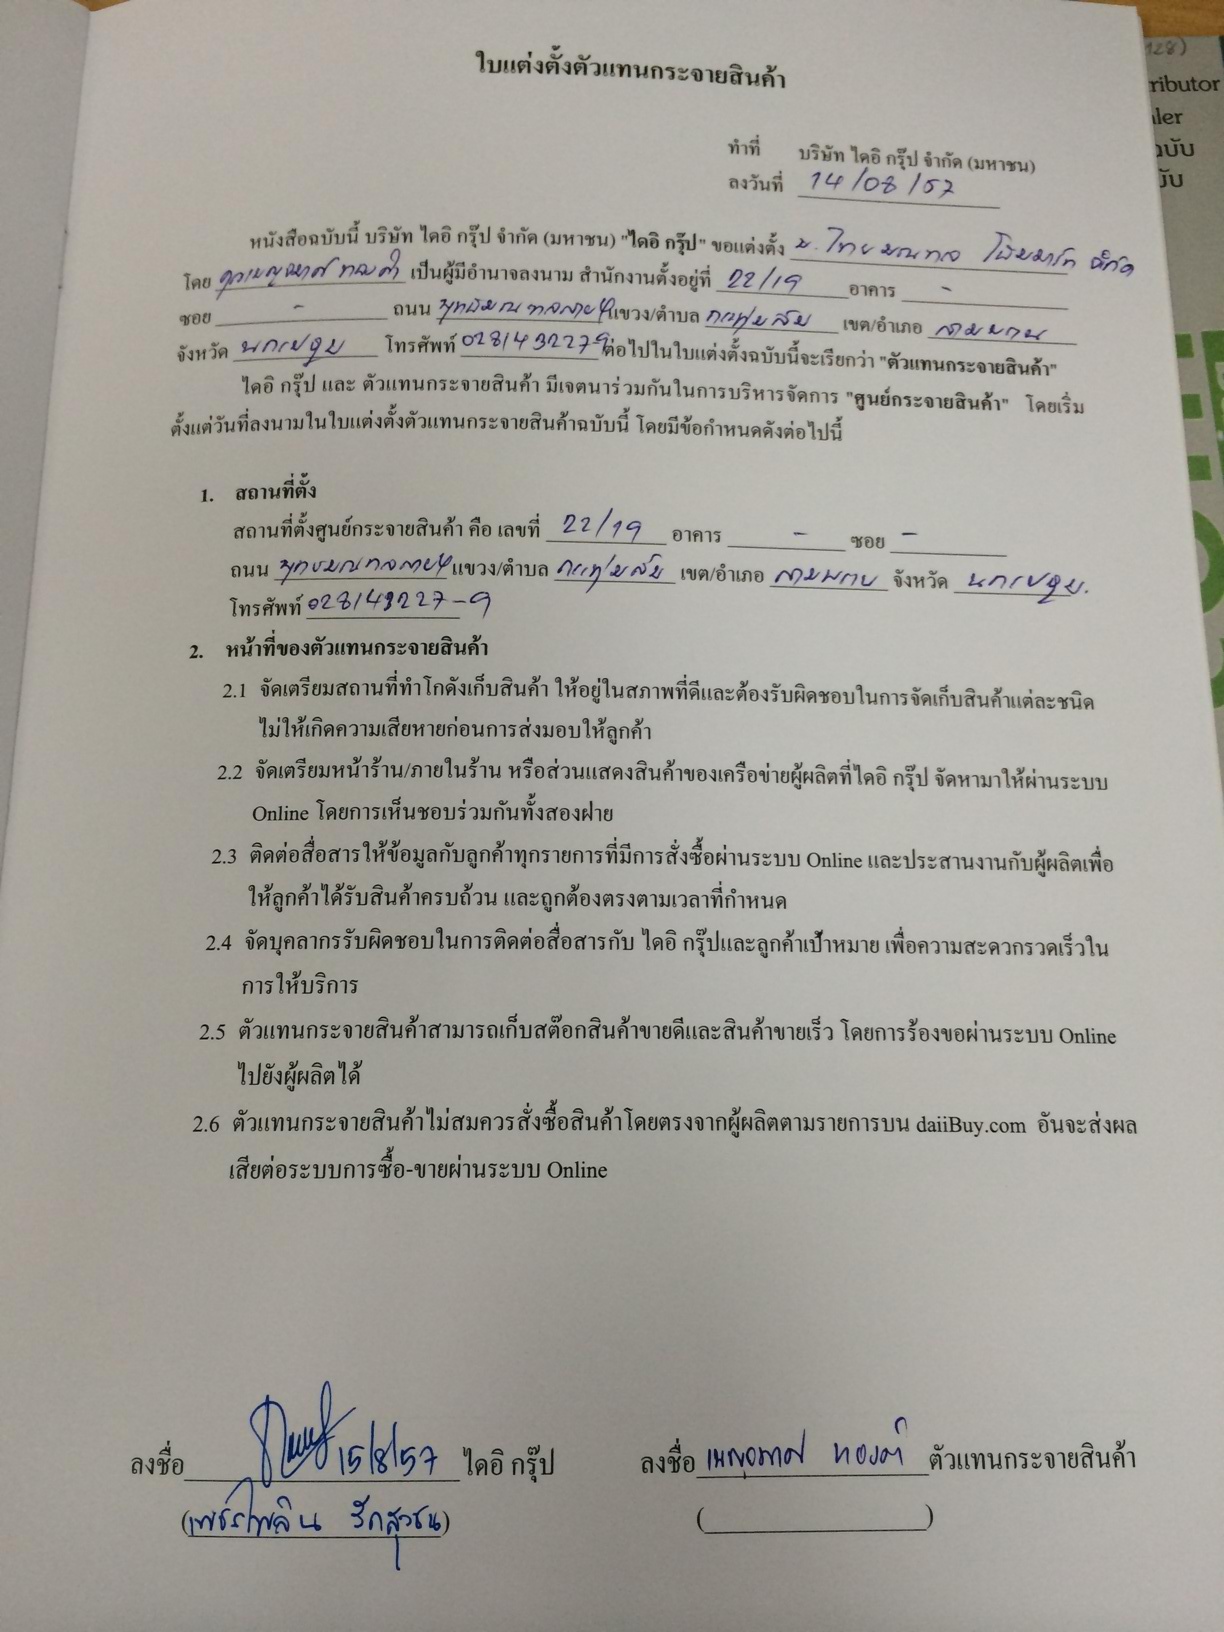 ใบแต่งตั้งตัวแทนกระจายสินค้า
ทำที่ บริษัท ไดอิ กรุ๊ป จำกัด (มหาชน)
ลงวันที่ 14/08/57
หนังสือฉบับนี้ บริษัท ไดอิ กรุ๊ป จำกัด (มหาชน) "ไดอิ กรุ๊ป" ขอแต่งตั้ง บ. ไทยมณฑล โฮมมาร์ท จำกัด
โดย เป็นผู้มีอำนาจลงนาม สำนักงานตั้งอยู่ที่ 22/19 อาคาร -
ซอย - ถนน พุทธมณฑลสาย 4 แขวง/ตำบล กระทุ่มล้ม เขต/อำเภอ สามพราน
จังหวัด นครปฐม โทรศัพท์ 028143227-9 ต่อไปในใบแต่งตั้งฉบับนี้จะเรียกว่า "ตัวแทนกระจายสินค้า"
ไดอิ กรุ๊ป และ ตัวแทนกระจายสินค้า มีเจตนาร่วมกันในการบริหารจัดการ "ศูนย์กระจายสินค้า" โดยเริ่ม
ตั้งแต่วันที่ลงนามในใบแต่งตั้งตัวแทนกระจายสินค้าฉบับนี้ โดยมีข้อกำหนดดังต่อไปนี้
1. สถานที่ตั้ง
สถานที่ตั้งศูนย์กระจายสินค้า คือ เลขที่ 22/19 อาคาร - ซอย -
ถนน พุทธมณฑลสาย 4 แขวง/ตำบล กระทุ่มล้ม เขต/อำเภอ สามพราน จังหวัด นครปฐม.
โทรศัพท์ 028143227-9
2. หน้าที่ของตัวแทนกระจายสินค้า
2.1 จัดเตรียมสถานที่ทำโกดังเก็บสินค้า ให้อยู่ในสภาพที่ดีและต้องรับผิดชอบในการจัดเก็บสินค้าแต่ละชนิด
ไม่ให้เกิดความเสียหายก่อนการส่งมอบให้ลูกค้า
2.2 จัดเตรียมหน้าร้าน/ภายในร้าน หรือส่วนแสดงสินค้าของเครือข่ายผู้ผลิตที่ไดอิ กรุ๊ป จัดหามาให้ผ่านระบบ
Online โดยการเห็นชอบร่วมกันทั้งสองฝ่าย
2.3 ติดต่อสื่อสารให้ข้อมูลกับลูกค้าทุกรายการที่มีการสั่งซื้อผ่านระบบ Online และประสานงานกับผู้ผลิตเพื่อ
ให้ลูกค้าได้รับสินค้าครบถ้วน และถูกต้องตรงตามเวลาที่กำหนด
2.4 จัดบุคลากรรับผิดชอบในการติดต่อสื่อสารกับ ไดอิ กรุ๊ปและลูกค้าเป้าหมาย เพื่อความสะดวกรวดเร็วใน
การให้บริการ
2.5 ตัวแทนกระจายสินค้าสามารถเก็บสต๊อกสินค้าขายดีและสินค้าขายเร็ว โดยการร้องขอผ่านระบบ Online
ไปยังผู้ผลิตได้
2.6 ตัวแทนกระจายสินค้าไม่สมควรสั่งซื้อสินค้าโดยตรงจากผู้ผลิตตามรายการบน daiiBuy.com อันจะส่งผล
เสียต่อระบบการซื้อ-ขายผ่านระบบ Online
ลงชื่อ 15/8/57 ไดอิ กรุ๊ป ลงชื่อ ตัวแทนกระจายสินค้า
(เพชรไพลิน รักสุวชน) ( )
128)
ributor
ler